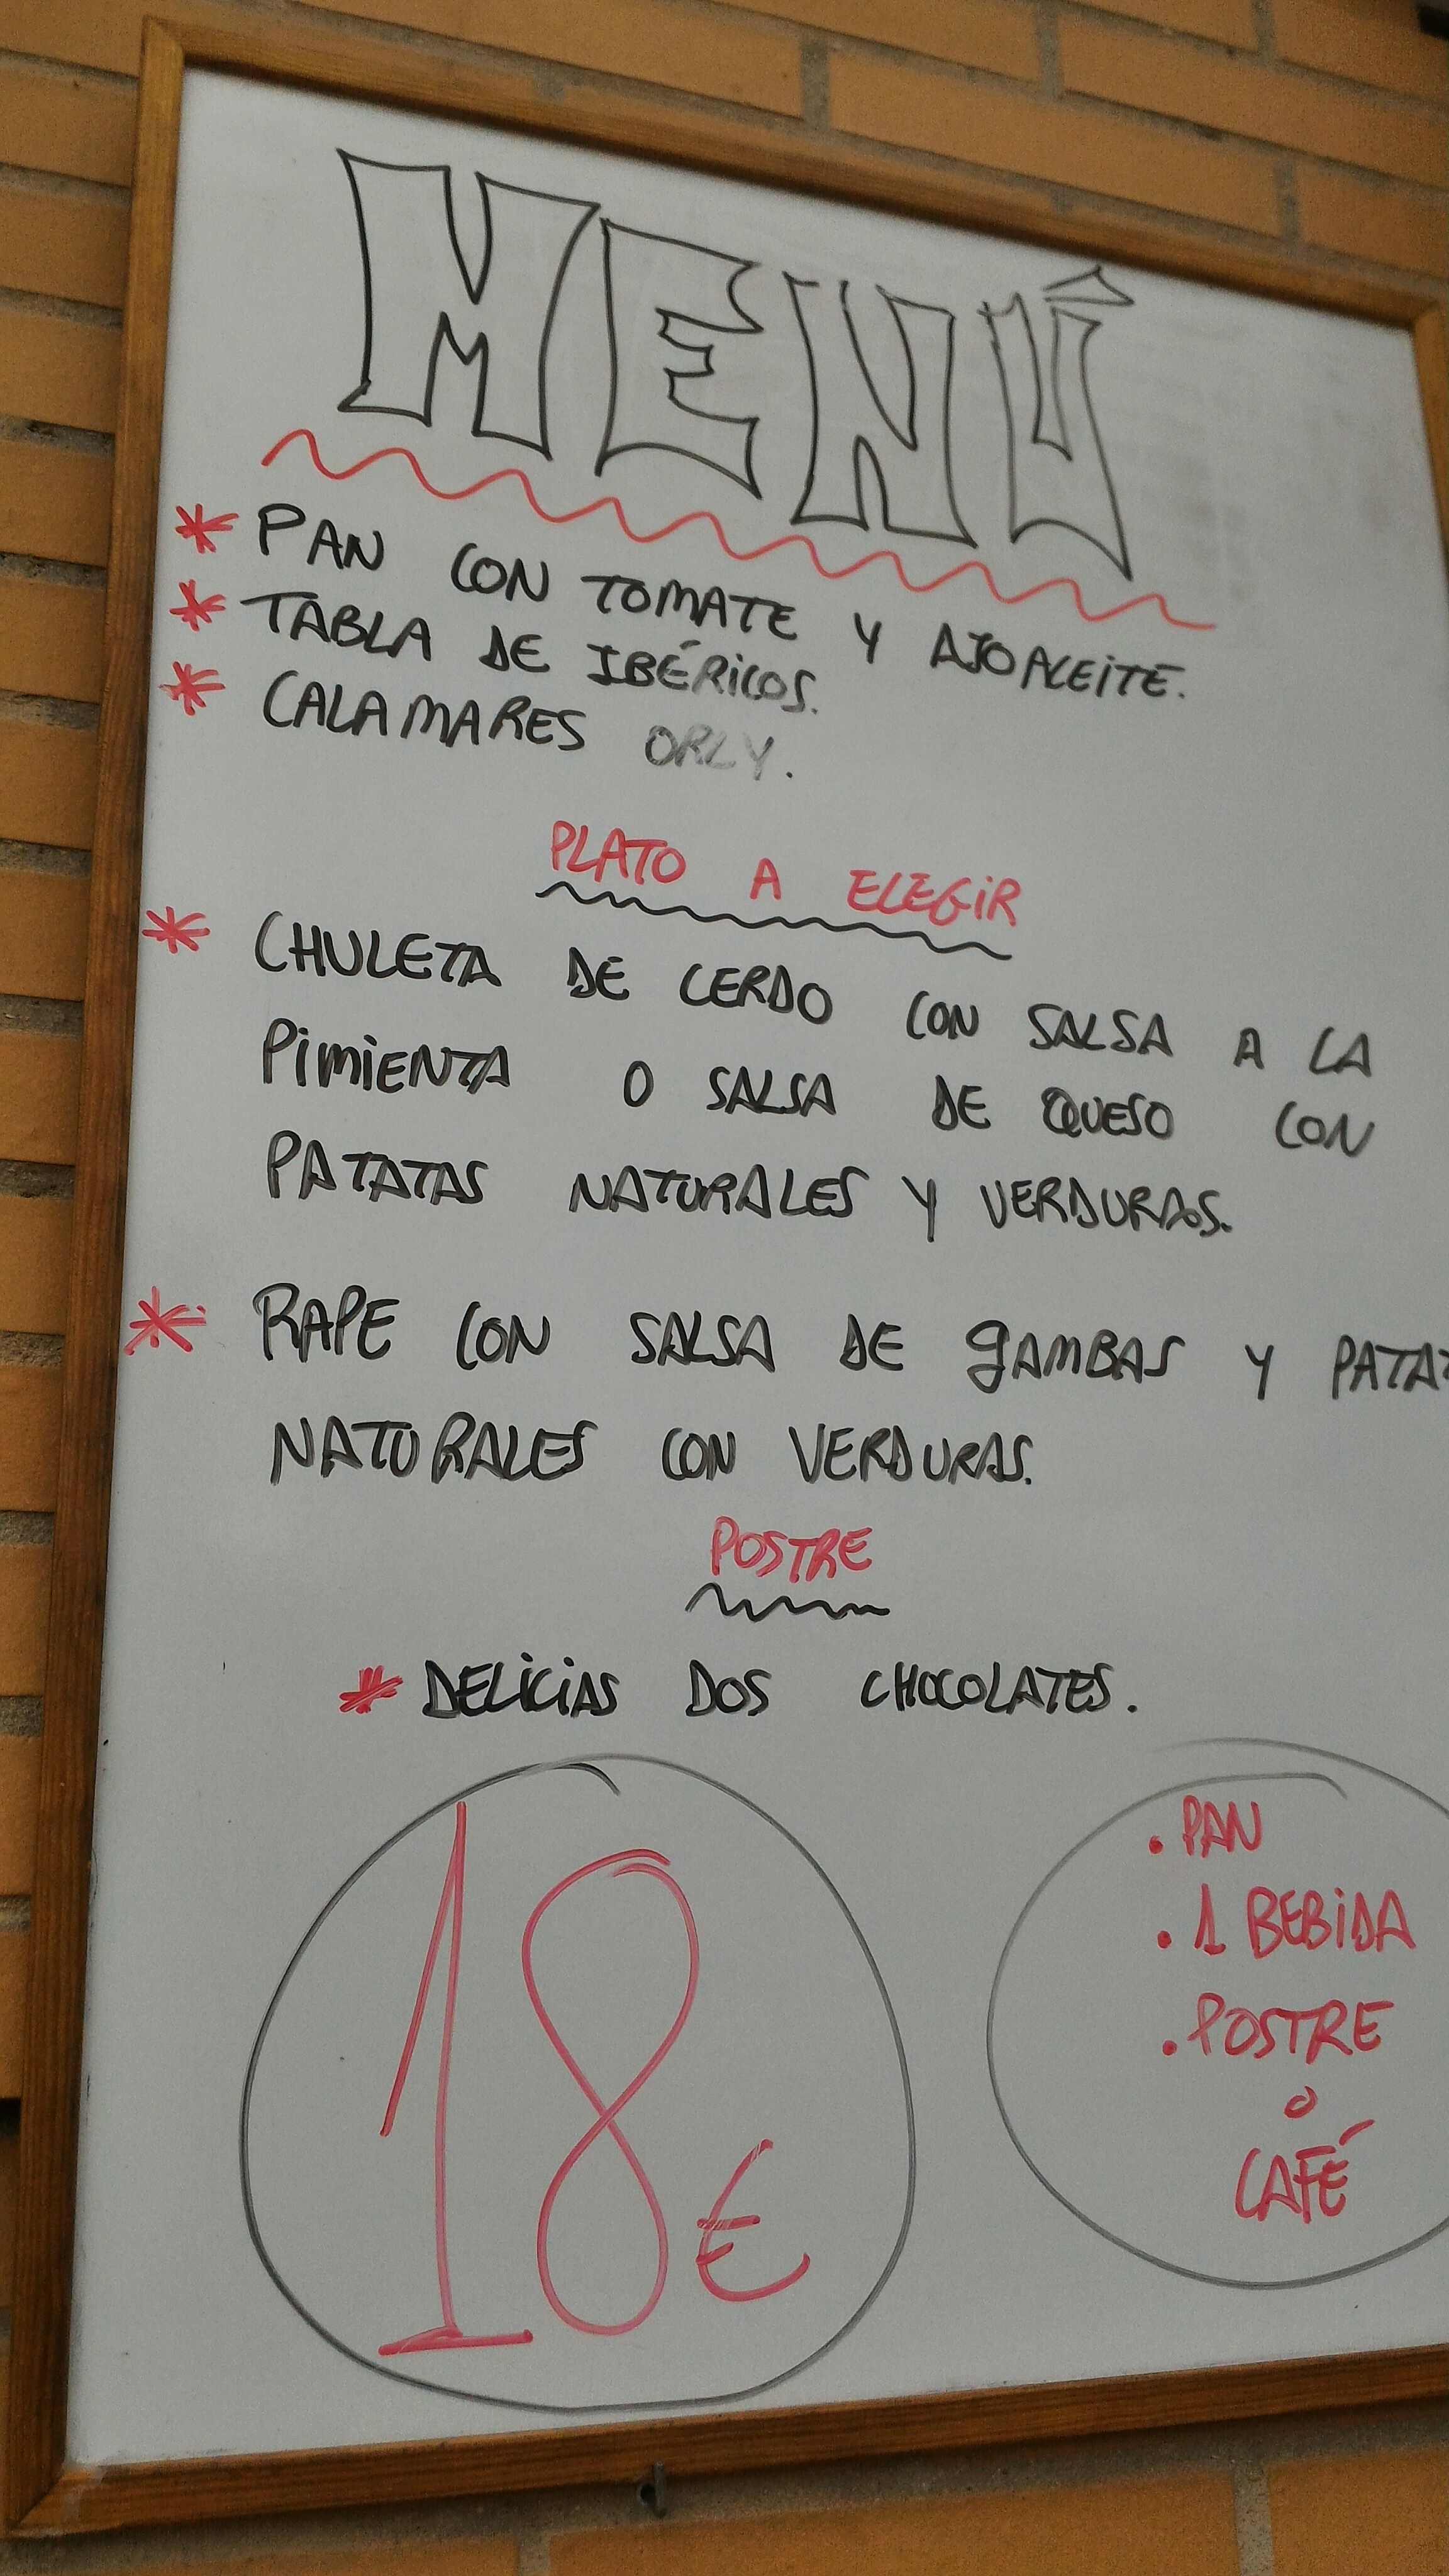 MENÚ
* PAN CON TOMATE Y AJOACEITE.
* TABLA DE IBÉRICOS.
* CALAMARES ORLY.
PLATO A ELEGIR
* CHULETA DE CERDO CON SALSA A LA
PIMIENTA O SALSA DE QUESO CON
PATATAS NATURALES Y VERDURAS.
* RAPE CON SALSA DE GAMBAS Y PATAT
NATURALES CON VERDURAS.
POSTRE
* DELICIAS DOS CHOCOLATES.
18€
. PAN
. 1 BEBIDA
. POSTRE
O
CAFÉ